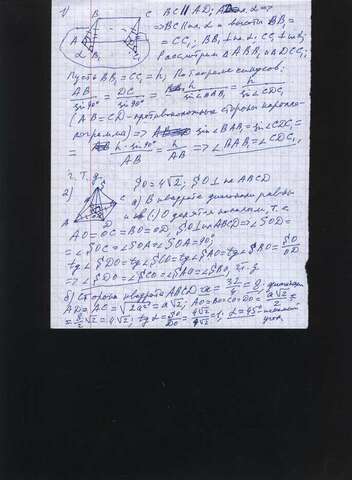 1) BC ∥ AD; AD ⊂ пл. α ⇒
⇒ BC ∥ пл. α и высоты BB₁ =
= CC₁; BB₁ ⊥ пл. α, CC₁ ⊥ пл. α
Рассмотрим △ABB₁ и △DCC₁;
Пусть BB₁ = CC₁ = h, По теореме синусов:
AB/sin90° = DC/sin90° = h/sin∠BAB₁ = h/sin∠CDC₁
(AB = CD - противоположные стороны параллелограмма) ⇒ sin∠BAB₁ = sin∠CDC₁ =
= h·sin90°/AB = h/AB ⇒ ∠BAB₁ = ∠CDC₁,
ч. т. д.
2) SO = 4√2; SO ⊥ пл ABCD
а) В квадрате диагонали равны
и в (·) O делятся пополам, т. е.
AO = OC = BO = OD, SO ⊥ пл ABCD ⇒ ∠SOD =
= ∠SOC = ∠SOA = ∠SOA = 90°;
tg∠SDO = tg∠SCO = tg∠SAO = tg∠SBO = SO/OD
⇒ ∠SDO = ∠SCO = ∠SAO = ∠SBO, ч. т. д.
б) Сторона квадрата ABCD a = 32/4 = 8; диагонали
= √2a² = a√2; AO = BO = CO = DO = a√2/2 =
= 8/2 √2 = 4√2; tg α = SO/DO = 4√2/4√2 = 1; α = 45° искомый
угол